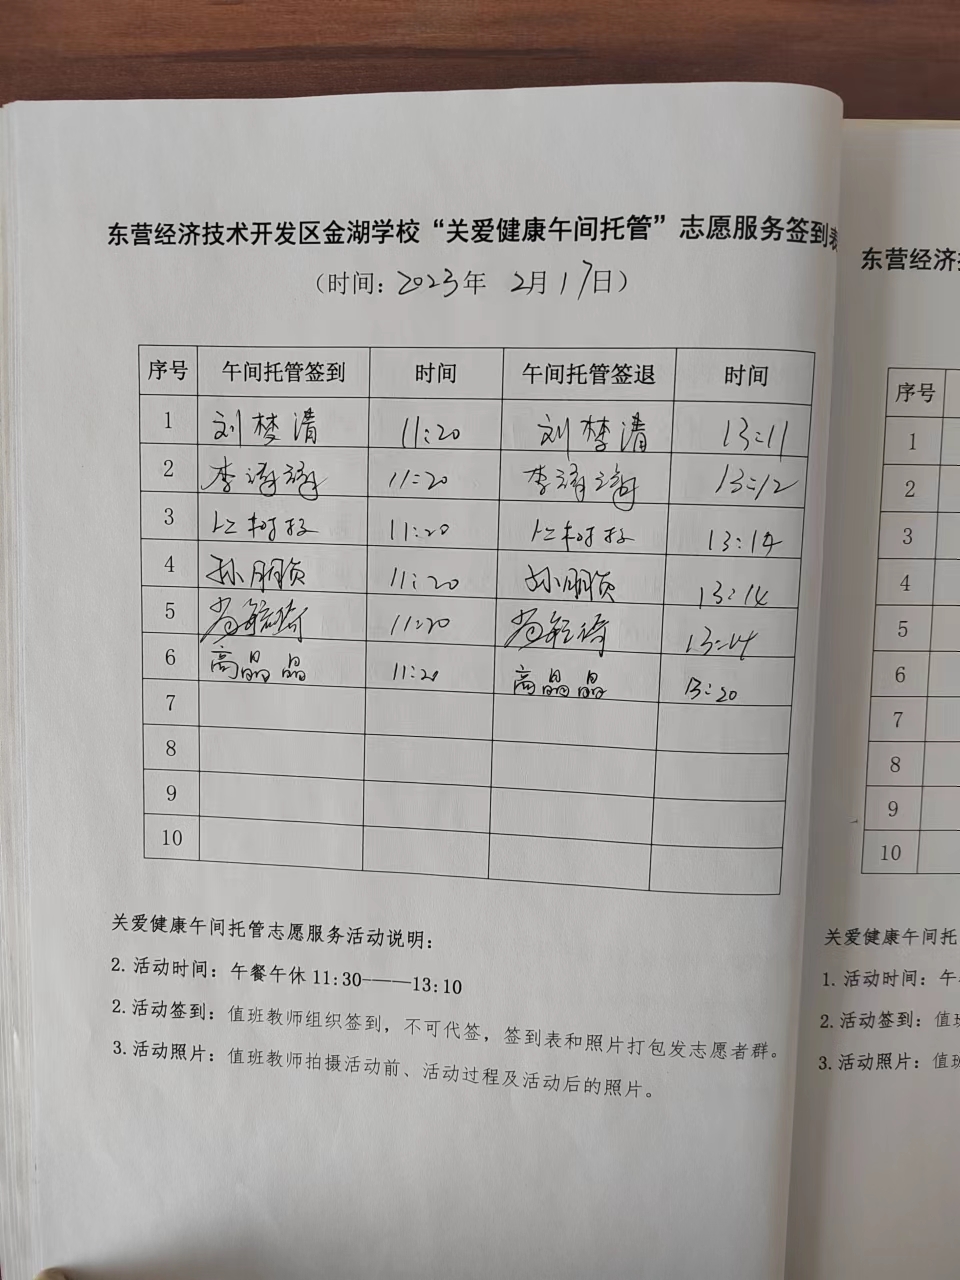 东营经济技术开发区金湖学校“关爱健康午间托管”志愿服务签到表
（时间：2023年 2月17日）
序号 午间托管签到 时间 午间托管签退 时间
1 刘梦清 11:20 刘梦清 13:11
2 李 11:20 李 13:12
3 11:20 13:14
4 孙朋贞 11:20 孙朋贞 13:14
5 11:20 13:14
6 高晶晶 11:20 高晶晶 13:20
7
8
9
10
关爱健康午间托管志愿服务活动说明：
2. 活动时间：午餐午休 11:30——13:10
2. 活动签到：值班教师组织签到，不可代签，签到表和照片打包发志愿者群。
3. 活动照片：值班教师拍摄活动前、活动过程及活动后的照片。
东营经济
序号
1
2
3
4
5
6
7
8
9
10
关爱健康午间托
1. 活动时间：午
2. 活动签到：值班
3. 活动照片：值班